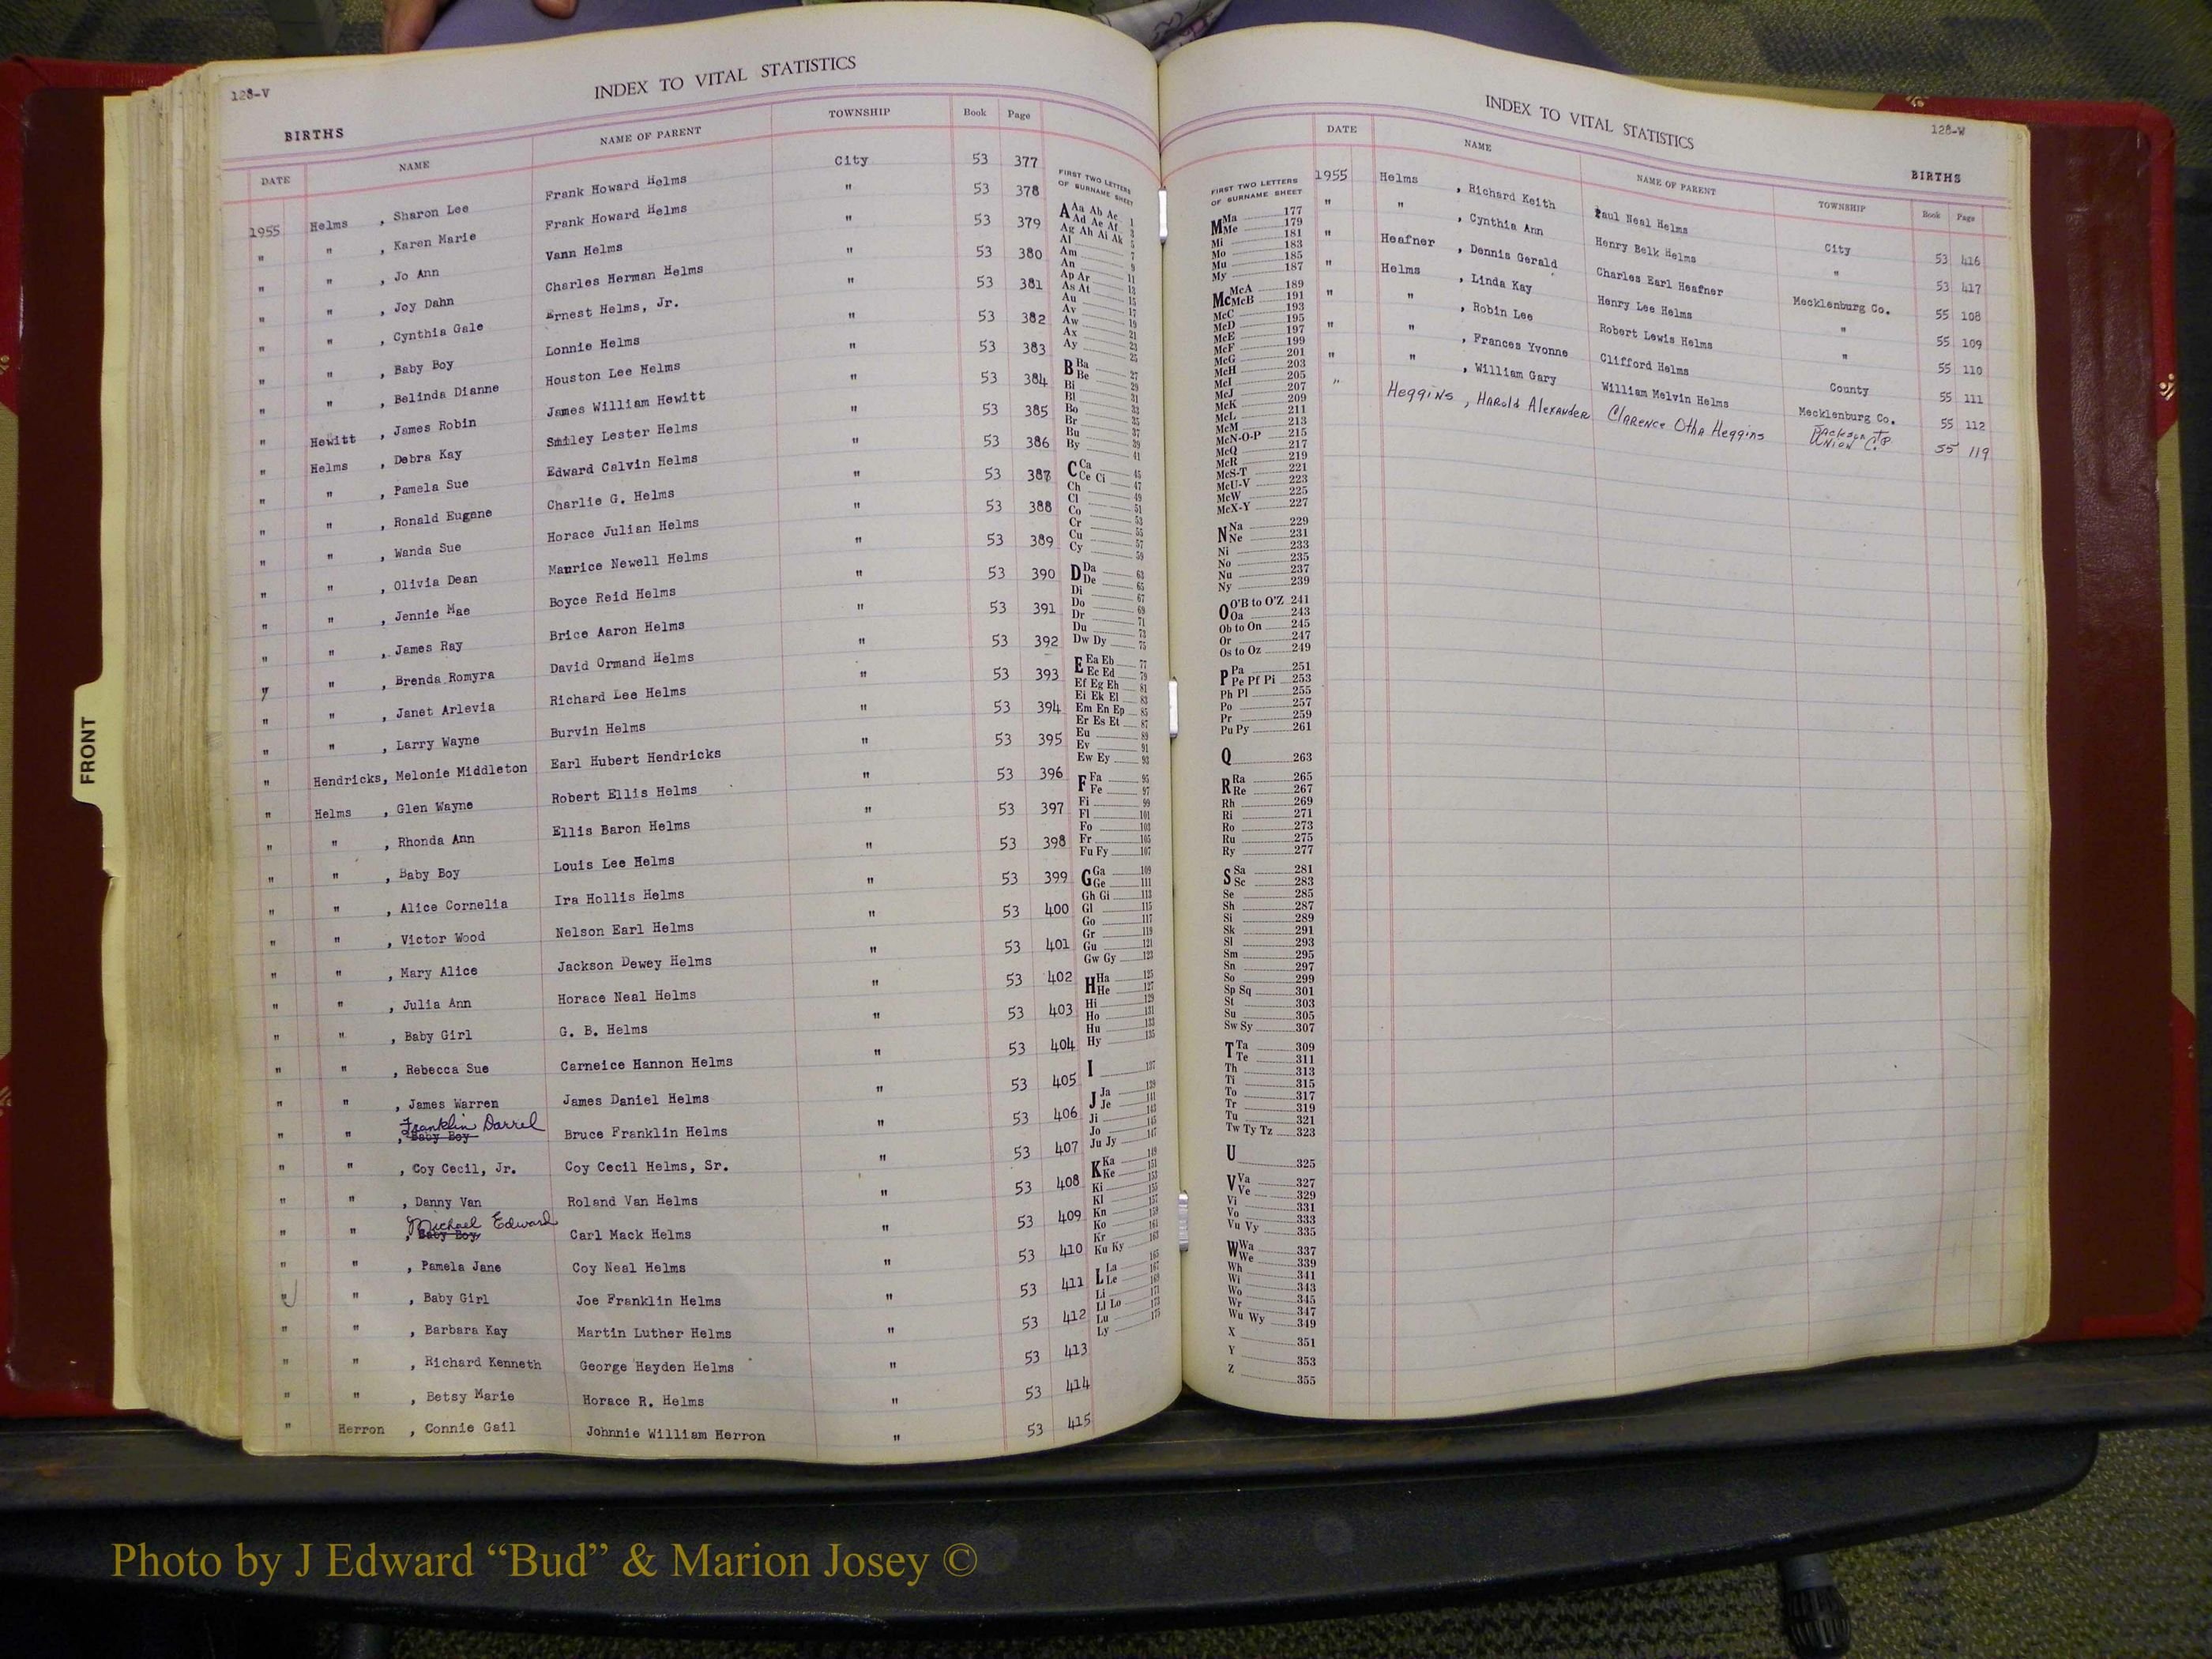 128-V
INDEX TO VITAL STATISTICS
BIRTHS
DATE NAME NAME OF PARENT TOWNSHIP Book Page
1955 Helms , Sharon Lee Frank Howard Helms City 53 377
" " , Karen Marie Frank Howard Helms " 53 378
" " , Jo Ann Vann Helms " 53 379
" " , Joy Dahn Charles Herman Helms " 53 380
" " , Cynthia Gale Ernest Helms, Jr. " 53 381
" " , Baby Boy Lonnie Helms " 53 382
" " , Belinda Dianne Houston Lee Helms " 53 383
" Hewitt , James Robin James William Hewitt " 53 384
" Helms , Debra Kay Smiley Lester Helms " 53 385
" " , Pamela Sue Edward Calvin Helms " 53 386
" " , Ronald Eugene Charlie G. Helms " 53 387
" " , Wanda Sue Horace Julian Helms " 53 388
" " , Olivia Dean Maurice Newell Helms " 53 389
" " , Jennie Mae Boyce Reid Helms " 53 390
" " , James Ray Brice Aaron Helms " 53 391
" " , Brenda Romyra David Ormand Helms " 53 392
" " , Janet Arlevia Richard Lee Helms " 53 393
" " , Larry Wayne Burvin Helms " 53 394
" Hendricks, Melonie Middleton Earl Hubert Hendricks " 53 395
" Helms , Glen Wayne Robert Ellis Helms " 53 396
" " , Rhonda Ann Ellis Baron Helms " 53 397
" " , Baby Boy Louis Lee Helms " 53 398
" " , Alice Cornelia Ira Hollis Helms " 53 399
" " , Victor Wood Nelson Earl Helms " 53 400
" " , Mary Alice Jackson Dewey Helms " 53 401
" " , Julia Ann Horace Neal Helms " 53 402
" " , Baby Girl G. B. Helms " 53 403
" " , Rebecca Sue Carneice Hannon Helms " 53 404
" " , James Warren James Daniel Helms " 53 405
Franklin Darrel
" " , Baby Boy Bruce Franklin Helms " 53 406
" " , Coy Cecil, Jr. Coy Cecil Helms, Sr. " 53 407
" " , Danny Van Roland Van Helms " 53 408
Michael Edward
" " , Baby Boy Carl Mack Helms " 53 409
" " , Pamela Jane Coy Neal Helms " 53 410
" " , Baby Girl Joe Franklin Helms " 53 411
" " , Barbara Kay Martin Luther Helms " 53 412
" " , Richard Kenneth George Hayden Helms " 53 413
" " , Betsy Marie Horace R. Helms " 53 414
" Herron , Connie Gail Johnnie William Herron " 53 415
FIRST TWO LETTERS
OF SURNAME SHEET
A Aa Ab Ac 1
Ad Ae Af 3
Ag Ah Ai Ak 5
Al 7
Am 9
An 11
Ap Ar 13
As At 15
Au 17
Av 19
Aw 21
Ax 23
Ay 25
B Ba 27
Be 29
Bi 31
Bl 33
Bo 35
Br 37
Bu 39
By 41
C Ca 45
Ce Ci 47
Ch 49
Cl 51
Co 53
Cr 55
Cu 57
Cy 59
D Da 63
De 65
Di 67
Do 69
Dr 71
Du 73
Dw Dy 75
E Ea Eb 77
Ec Ed 79
Ef Eg Eh 81
Ei Ek El 83
Em En Ep 85
Er Es Et 87
Eu 89
Ev 91
Ew Ey 93
F Fa 95
Fe 97
Fi 99
Fl 101
Fo 103
Fr 105
Fu Fy 107
G Ga 109
Ge 111
Gh Gi 113
Gl 115
Go 117
Gr 119
Gu 121
Gw Gy 123
H Ha 125
He 127
Hi 129
Ho 131
Hu 133
Hy 135
I 137
J Ja 139
Je 141
Ji 143
Jo 145
Ju Jy 147
K Ka 149
Ke 151
Ki 153
Kl 155
Kn 157
Ko 159
Kr 161
Ku Ky 163
L La 165
Le 167
Li 169
Ll Lo 171
Lu 173
Ly 175
FRONT
INDEX TO VITAL STATISTICS
128-W
BIRTHS
DATE NAME NAME OF PARENT TOWNSHIP Book Page
1955 Helms , Richard Keith Paul Neal Helms City 53 416
" " , Cynthia Ann Henry Belk Helms " 53 417
" Heafner , Dennis Gerald Charles Earl Heafner Mecklenburg Co. 55 108
" Helms , Linda Kay Henry Lee Helms " 55 109
" " , Robin Lee Robert Lewis Helms " 55 110
" " , Frances Yvonne Clifford Helms County 55 111
" " , William Gary William Melvin Helms Mecklenburg Co. 55 112
" Heggins , Harold Alexander Clarence Otha Heggins Jackson Tp. Union C. 55 119
FIRST TWO LETTERS
OF SURNAME SHEET
M Ma 177
Me 179
Mi 181
Mo 183
Mu 185
My 187
Mc McA 189
McB 191
McC 193
McD 195
McE 197
McF 199
McG 201
McH 203
McI 205
McJ 207
McK 209
McL 211
McM 213
McN-O-P 215
McQ 217
McR 219
McS-T 221
McU-V 223
McW 225
McX-Y 227
N Na 229
Ne 231
Ni 233
No 235
Nu 237
Ny 239
O O'B to O'Z 241
Oa 243
Ob to On 245
Or 247
Os to Oz 249
P Pa 251
Pe Pf Pi 253
Ph Pl 255
Po 257
Pr 259
Pu Py 261
Q 263
R Ra 265
Re 267
Rh 269
Ri 271
Ro 273
Ru 275
Ry 277
S Sa 281
Sc 283
Se 285
Sh 287
Si 289
Sk 291
Sl 293
Sm 295
Sn 297
So 299
Sp Sq 301
St 303
Su 305
Sw Sy 307
T Ta 309
Te 311
Th 313
Ti 315
To 317
Tr 319
Tu 321
Tw Ty Tz 323
U 325
V Va 327
Ve 329
Vi 331
Vo 333
Vu Vy 335
W Wa 337
We 339
Wh 341
Wi 343
Wo 345
Wr 347
Wu Wy 349
X 351
Y 353
Z 355
Photo by J Edward “Bud” & Marion Josey ©